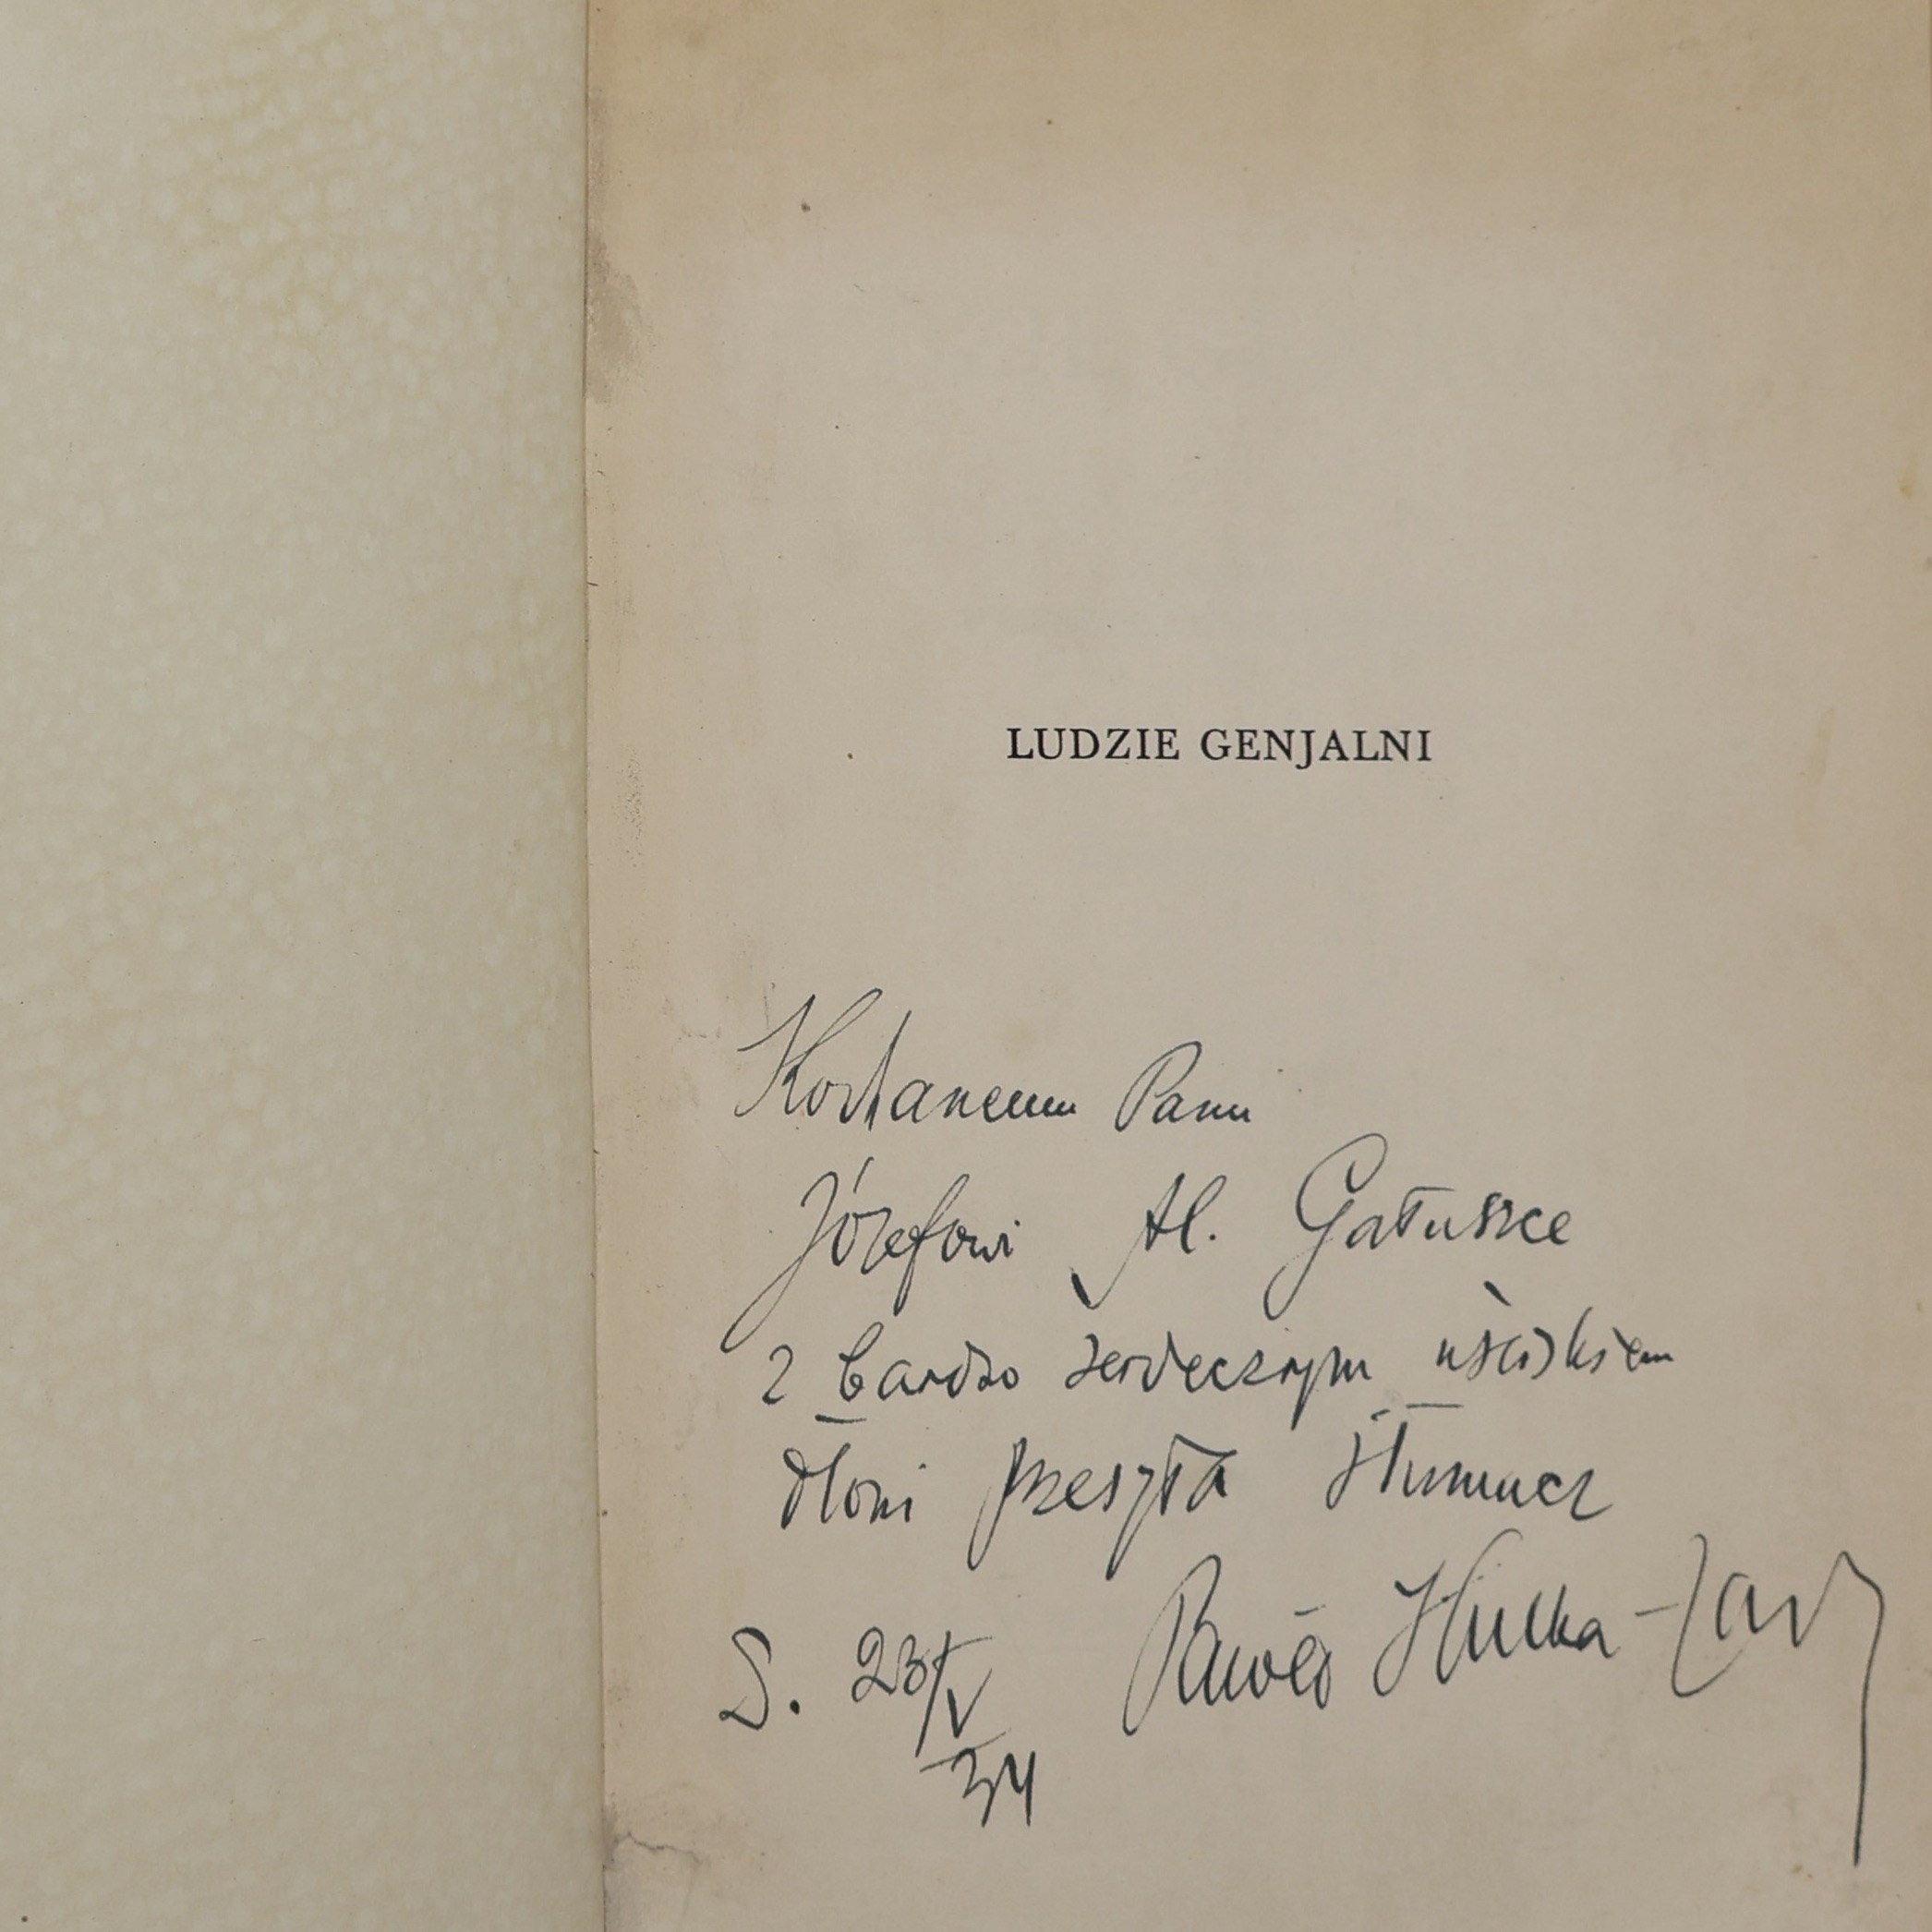 LUDZIE GENJALNI
Kochanemu Panu
Józefowi Al. Gałuszce
z bardzo serdecznym uściskiem
dłoni przesyła tłumacz
Paweł Hulka-Lask
S. 23/V
34